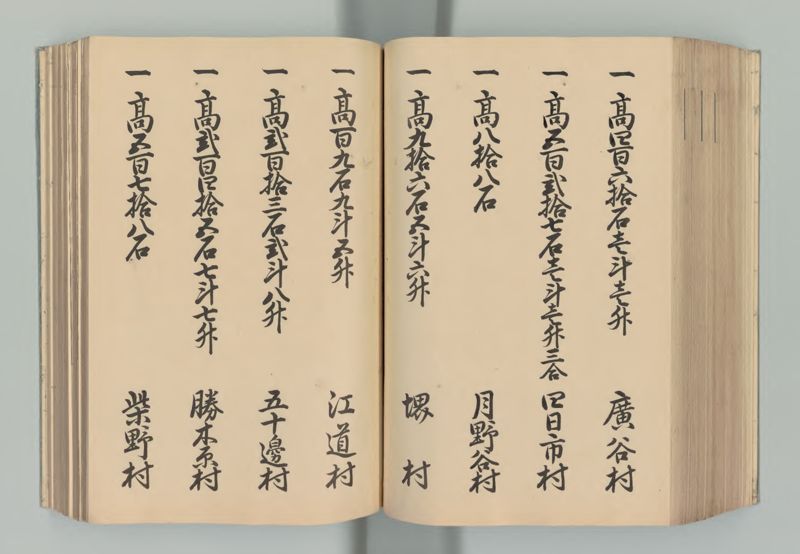 一 高四百六拾石壱斗壱升 廣谷村
一 高五百弐拾七石壱斗壱升三合 四日市村
一 高八拾八石 月野谷村
一 高九拾六石五斗六升 堺村
一 高百九石九斗五升 江道村
一 高弐百拾三石弐斗八升 五十邊村
一 高弐百四拾五石七斗七升 勝木原村
一 高五百七拾八石 柴野村